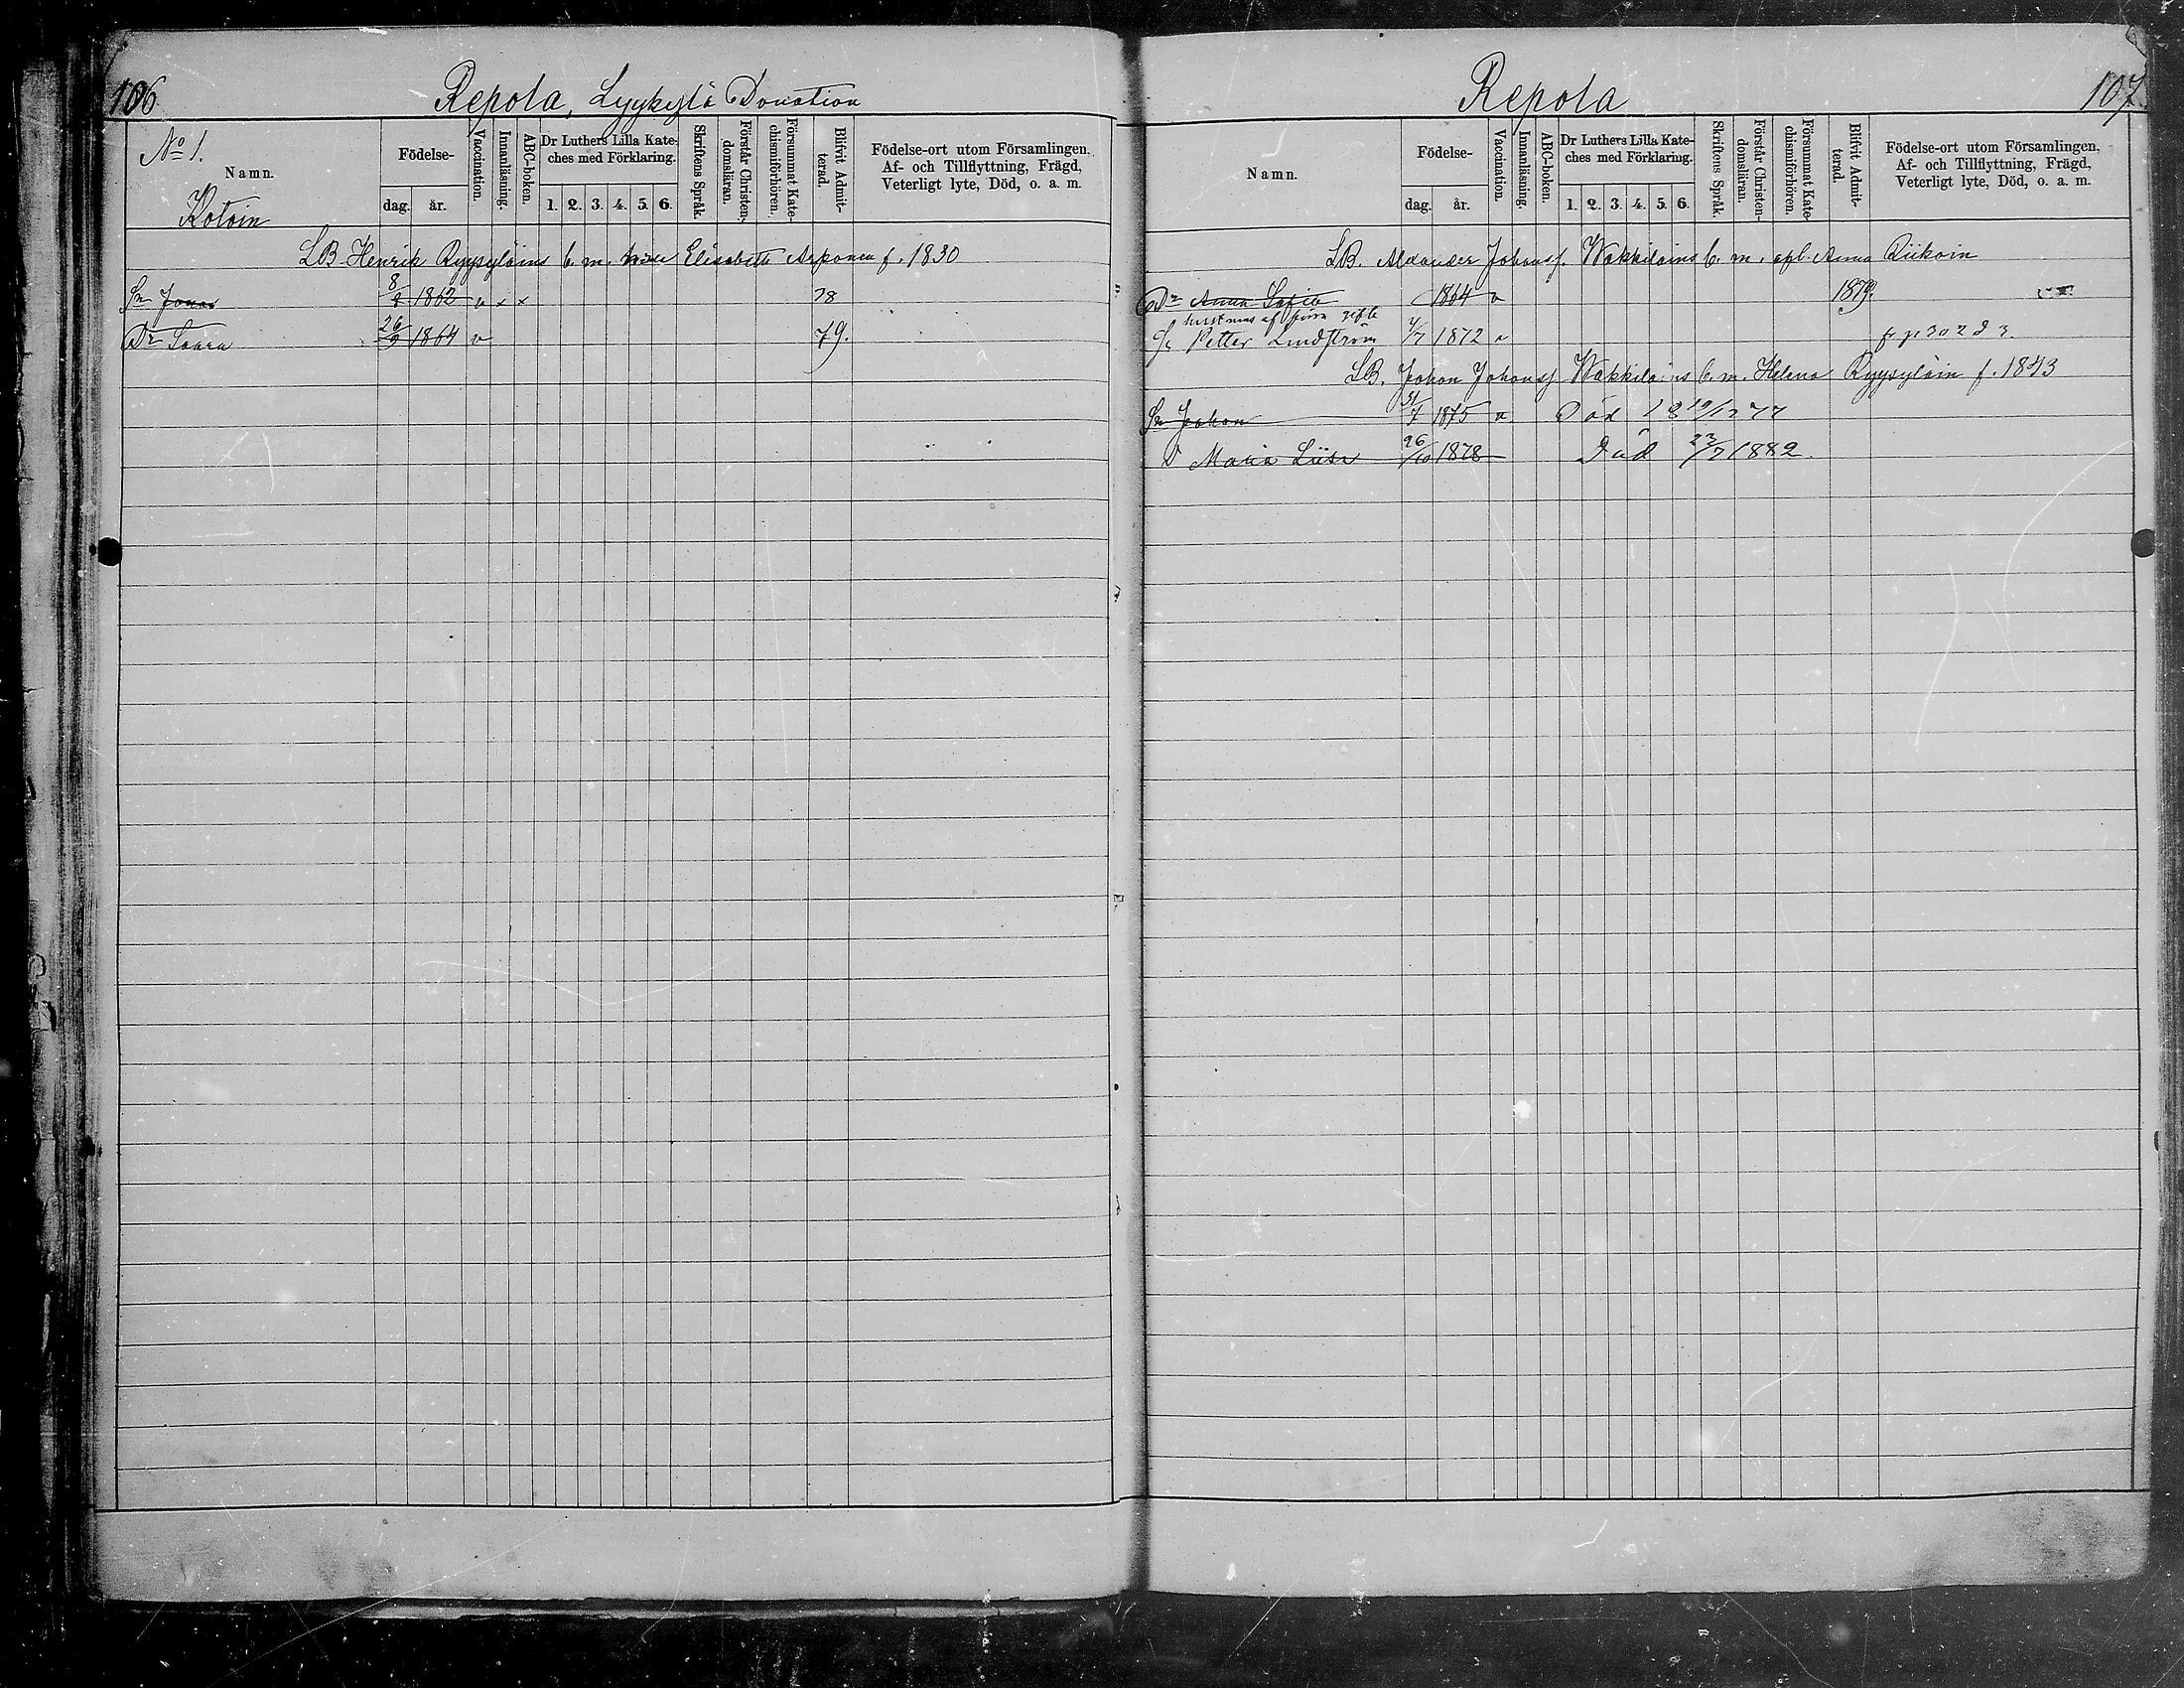 106
Repola, Lyykylä Donation
No 1.
Namn.
Kotoin
Födelse-
dag. år.
Vaccination.
Innanläsning.
ABC-boken.
Dr Luthers Lilla Kate-
ches med Förklaring.
1. 2. 3. 4. 5. 6.
Skriftens Språk.
Förstår Christen-
domsläran.
Försummat Kate-
chismiförhören.
Blifvit Admit-
terad.
Födelse-ort utom Församlingen,
Af- och Tillflyttning, Frägd,
Veterligt lyte, Död, o. a. m.
LB. Henrik Ryysyläins b. m. Elisabeth Arponen f. 1830
Sn Jonas 8/2 1862 v x x 78
Dr Saara 26/9 1864 v 79.
Repola
107
Namn.
Födelse-
dag. år.
Vaccination.
Innanläsning.
ABC-boken.
Dr Luthers Lilla Kate-
ches med Förklaring.
1. 2. 3. 4. 5. 6.
Skriftens Språk.
Förstår Christen-
domsläran.
Försummat Kate-
chismiförhören.
Blifvit Admit-
terad.
Födelse-ort utom Församlingen,
Af- och Tillflyttning, Frägd,
Veterligt lyte, Död, o. a. m.
LB. Alexander Johanss. Wakkilains b. m. afl. Anna Riikoin
Dr Anna Sofia 1864 v 1879.
hustruns af förra gifte
Petter Lindström 4/7 1872 v
LB. Johan Johanss Wakkilains b. m. Helena Ryysyläin f. 1843
Sn Johan 31/7 1875 v Död 18 19/12 77
D Maria Liisa 26/10 1878 Död 23/7 1882.